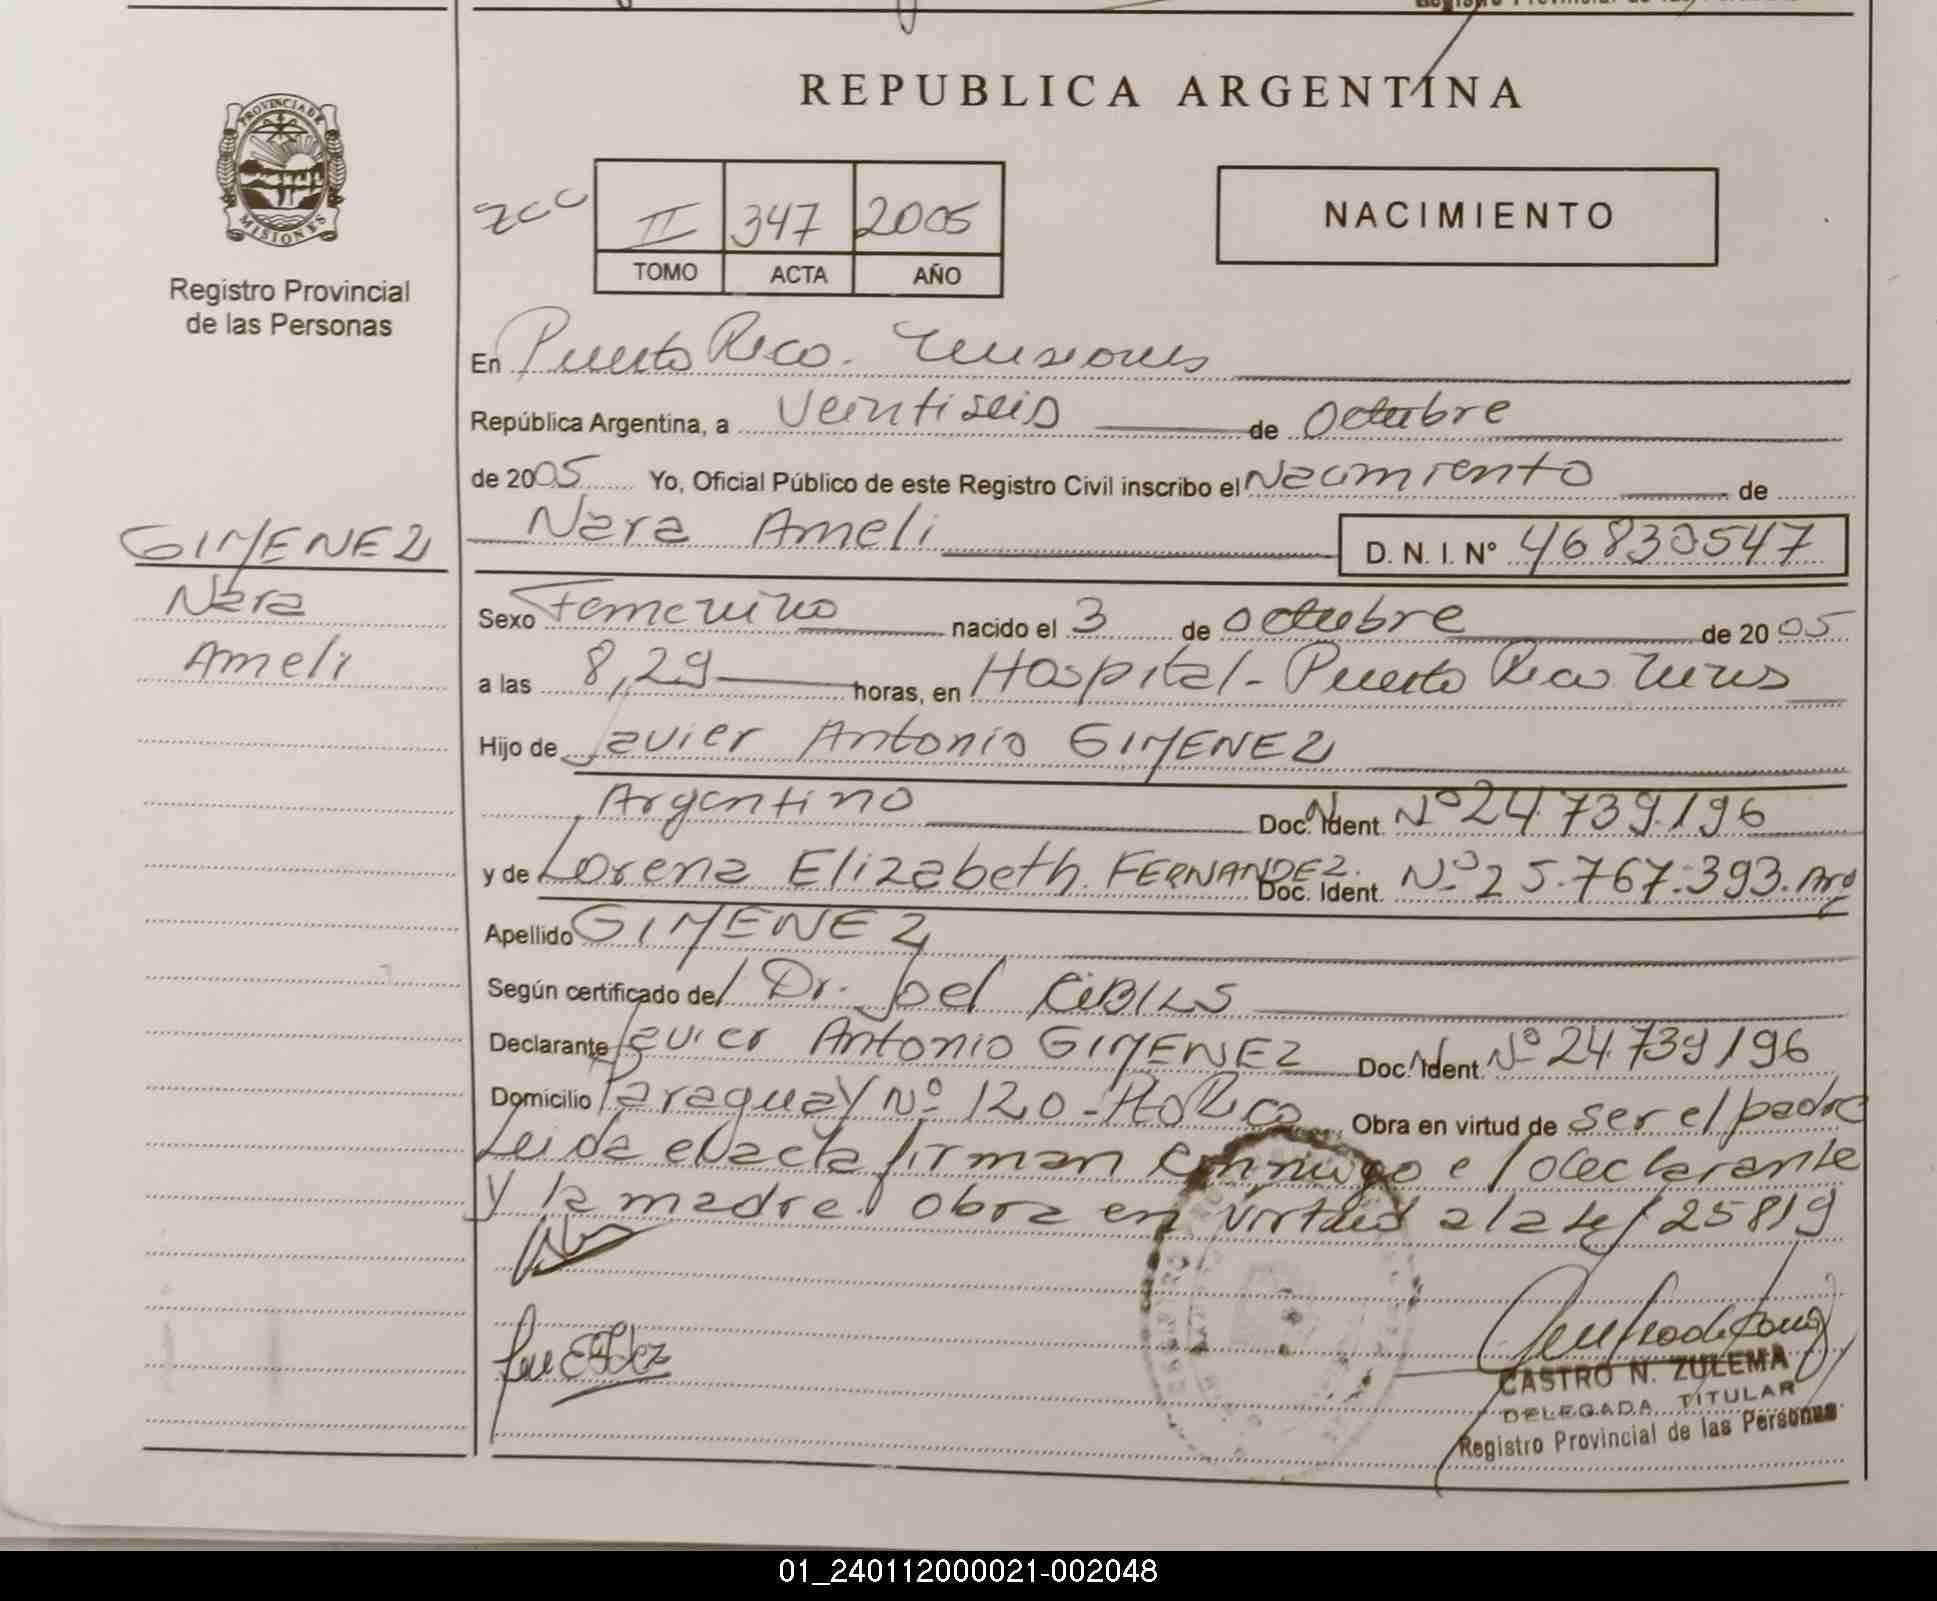 REPUBLICA ARGENTINA
PROVINCIA DE MISIONES
Registro Provincial
de las Personas
II 347 2005
TOMO ACTA AÑO
NACIMIENTO
En Puerto Rico. Misiones
República Argentina, a Veintiseis de Octubre
de 2005 Yo, Oficial Público de este Registro Civil inscribo el Nacimiento de
GIMENEZ
Nara
Ameli
Nara Ameli D. N. I. Nº 46830547
Sexo Femenino nacido el 3 de octubre de 2005
a las 8,29 horas, en Hospital - Puerto Rico Mnes
Hijo de Javier Antonio GIMENEZ
Argentino Doc. Ident. Nº 24.739.196
y de Lorena Elizabeth FERNANDEZ. Doc. Ident. Nº 25.767.393. Arg
Apellido GIMENEZ
Según certificado del Dr. Joel CIBILS
Declarante Javier Antonio GIMENEZ Doc. Ident. Nº 24.739196
Domicilio Paraguay Nº 120 - Pto Rico Obra en virtud de ser el padre
Leida el acta firman conmigo el declarante
y la madre. obra en virtud a la ley 25819
CASTRO N. ZULEMA
DELEGADA TITULAR
Registro Provincial de las Personas
01_240112000021-002048